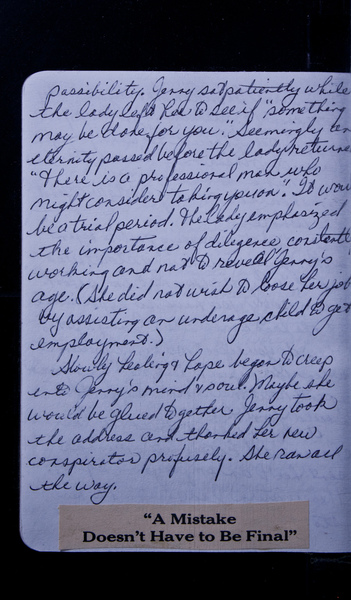 possibility. Jenny sat patiently while
the lady left her to see if "something
may be done for you." Seemingly an
eternity passed before the lady returne
"There is a professional man who
might consider taking you on". It wou
be a trial period. The lady emphasized
the importance of diligence, constantl
working and not to reveal Jenny's
age. (She did not wish to loose her job
by assisting an underage child to get
employment.)
Slowly healing & hope began to creep
into Jenny's mind & soul. Maybe she
would be glued together. Jenny took
the address and thanked her new
conspirator profusely. She ran all
the way.
"A Mistake
Doesn't Have to Be Final"